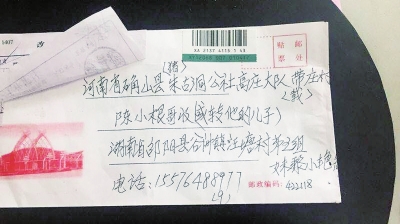 XA 2137 6110 1 43
贴 邮
票 处
(猪)
河南省确山县朱古洞公社高庄大队带庄村
(戴)
陈小根哥收(或转他的儿子)
湖南省邵阳县谷洲镇江塘村第2组
妹
电话:15576488977
邮政编码:422118